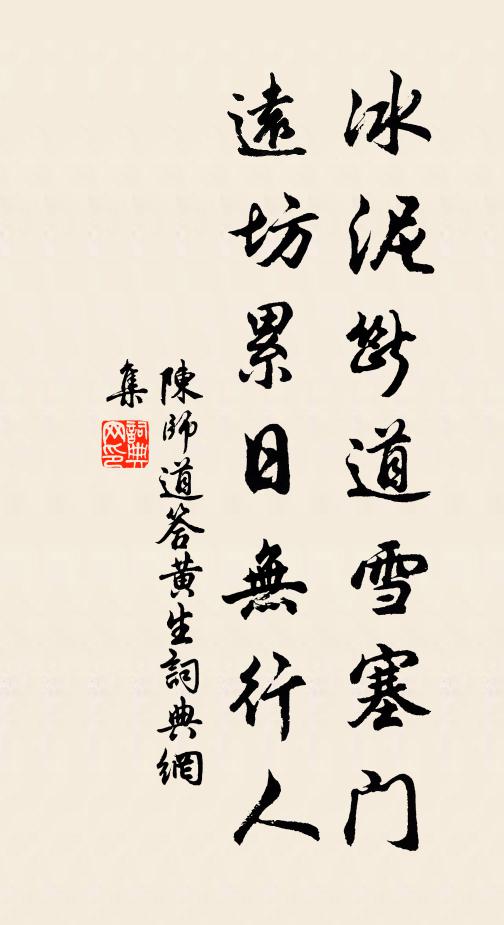 冰泥斷道雪塞门
遠坊累日無行人
陳師道答黃生詞典網
集
詞典
网印